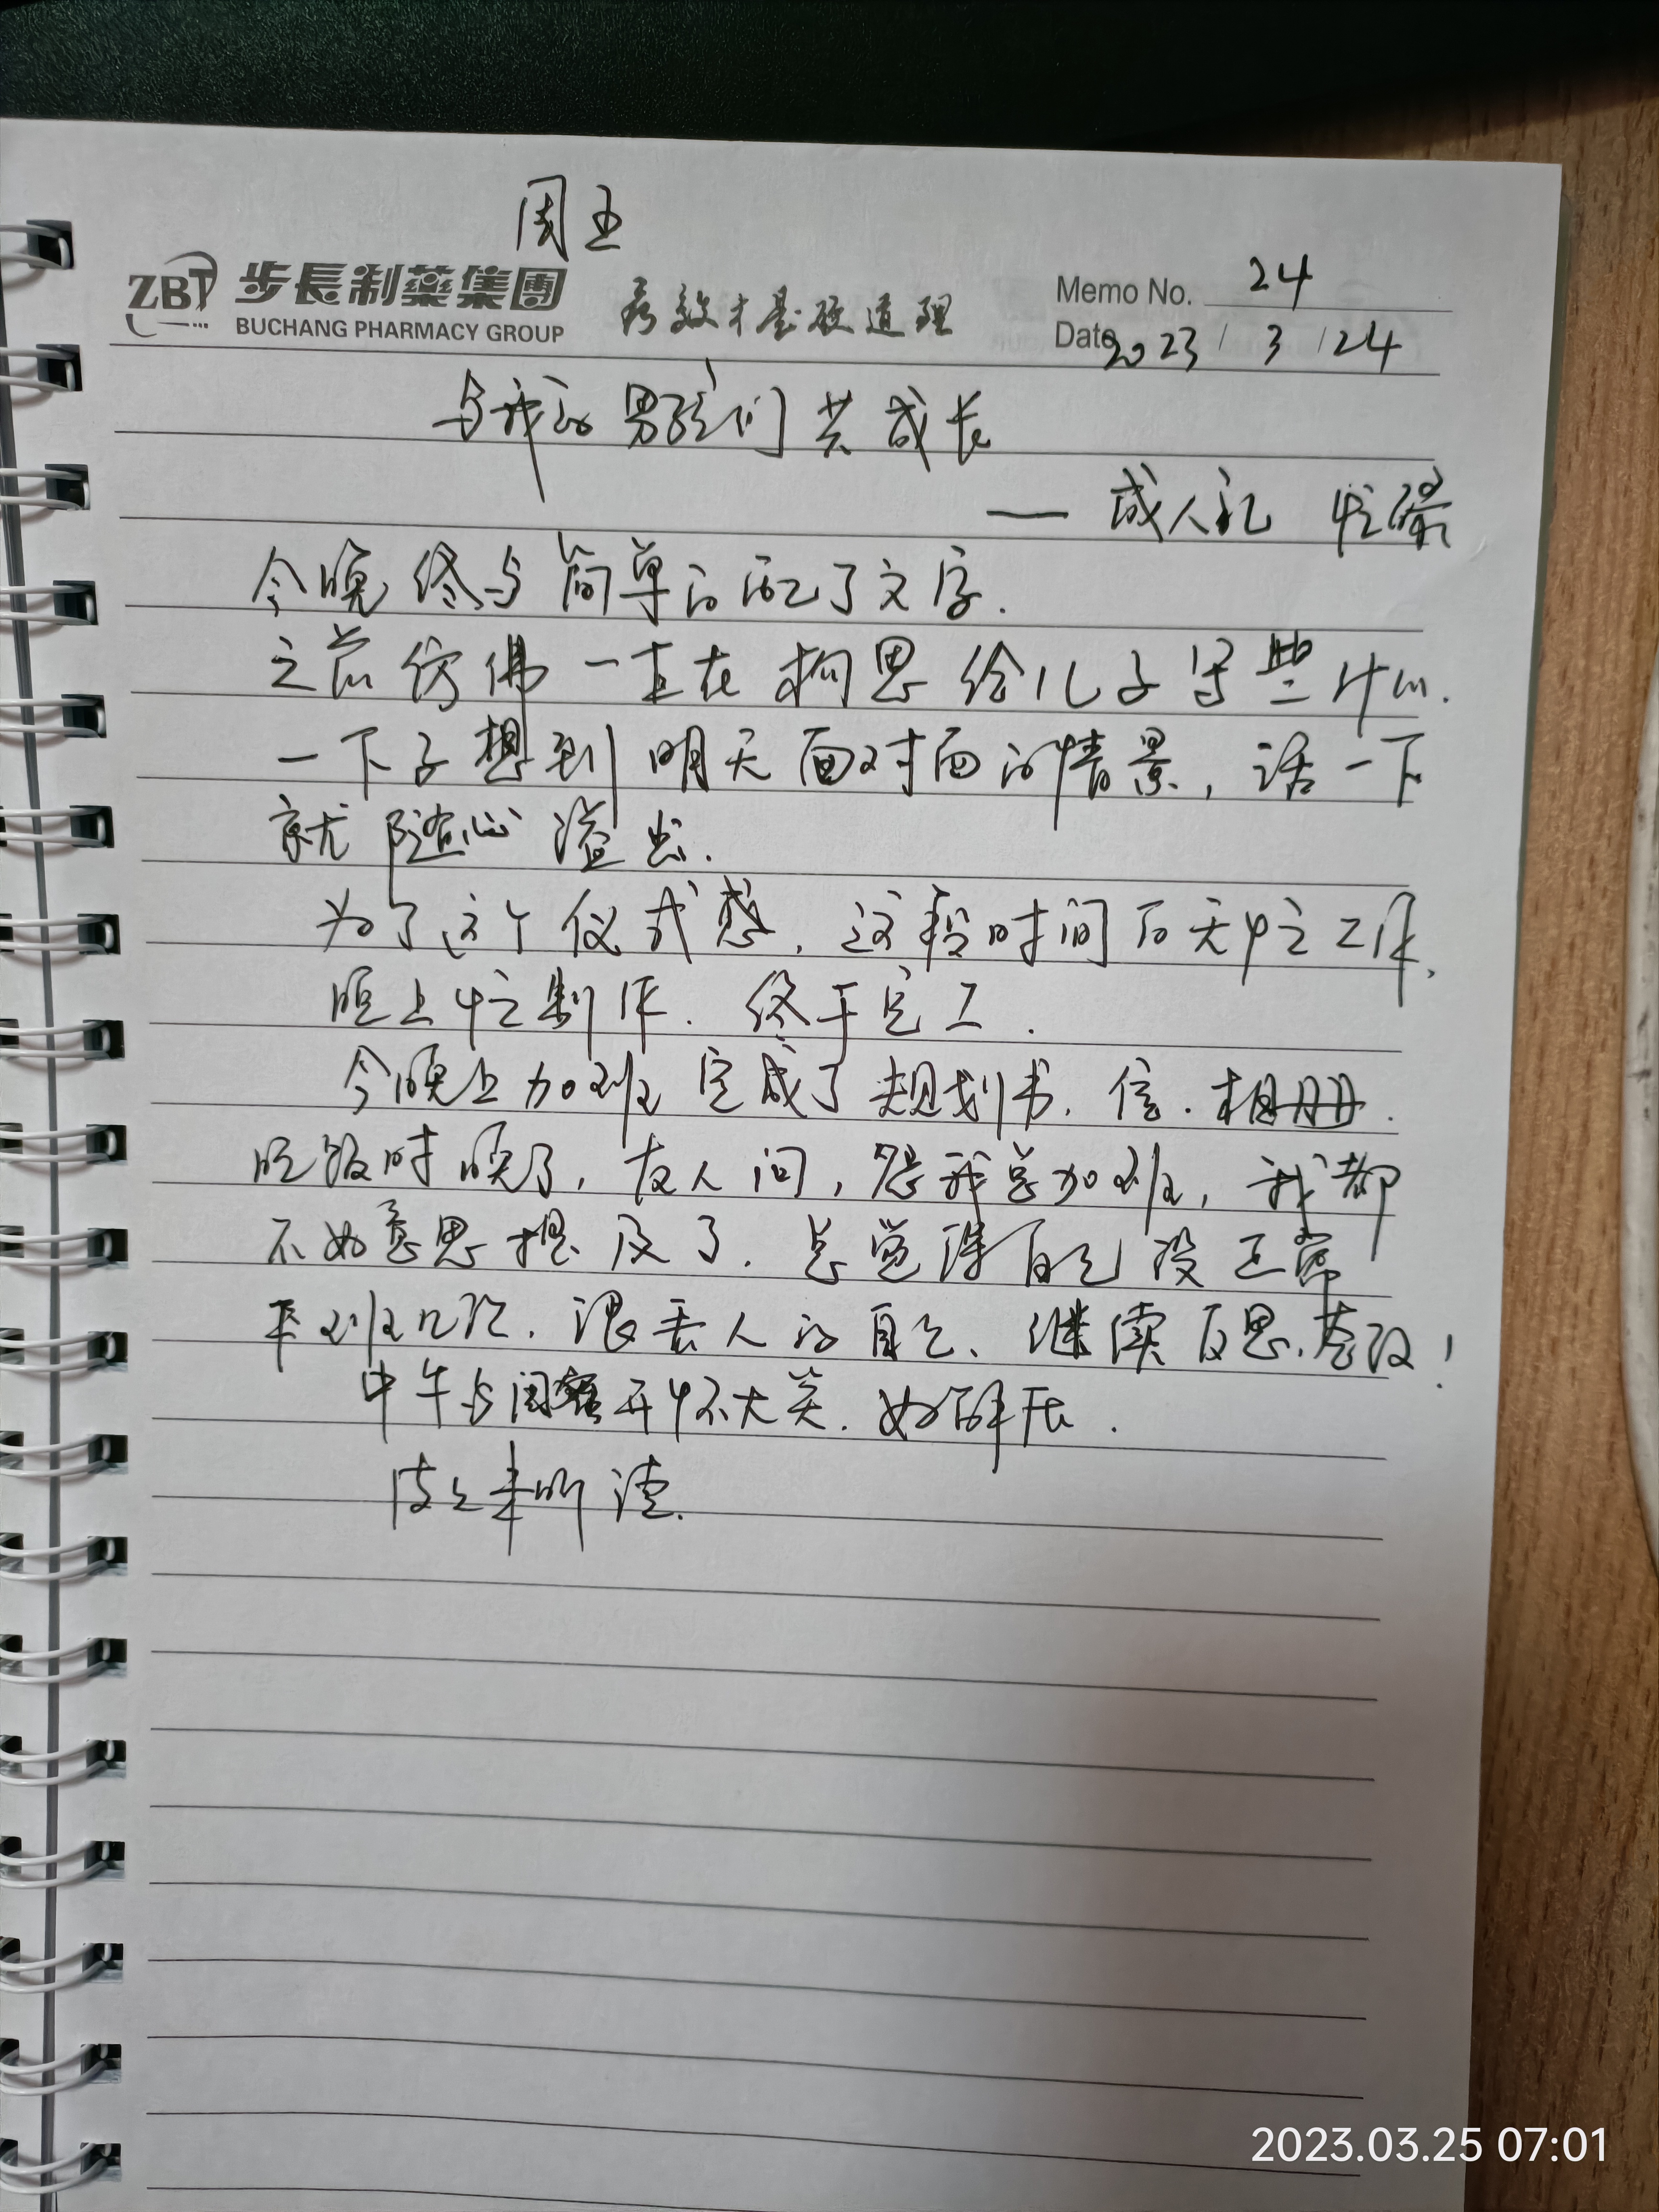 周五
ZBT 步長制藥集團
BUCHANG PHARMACY GROUP
疗效才是硬道理
Memo No. 24
Date 2023/3/24
与我的男孩们共成长
— 成人礼 忙碌
今晚终与简单的配了文字.
之前仿佛一直在构思给儿子写些什么.
一下子想到明天面对面的情景,话一下
就随心溢出.
为了这个仪式感,这段时间白天忙工作,
晚上忙制作.终于完工.
今晚上加班完成了规划书.信.相册.
吃饭时晚了,友人问,怨我总加班,我都
不好意思提及了.总觉得自己没正常
下班几次.很丢人的自己、继续反思.整改!
中午与闺蜜开怀大笑.好解压.
2023.03.25 07:01